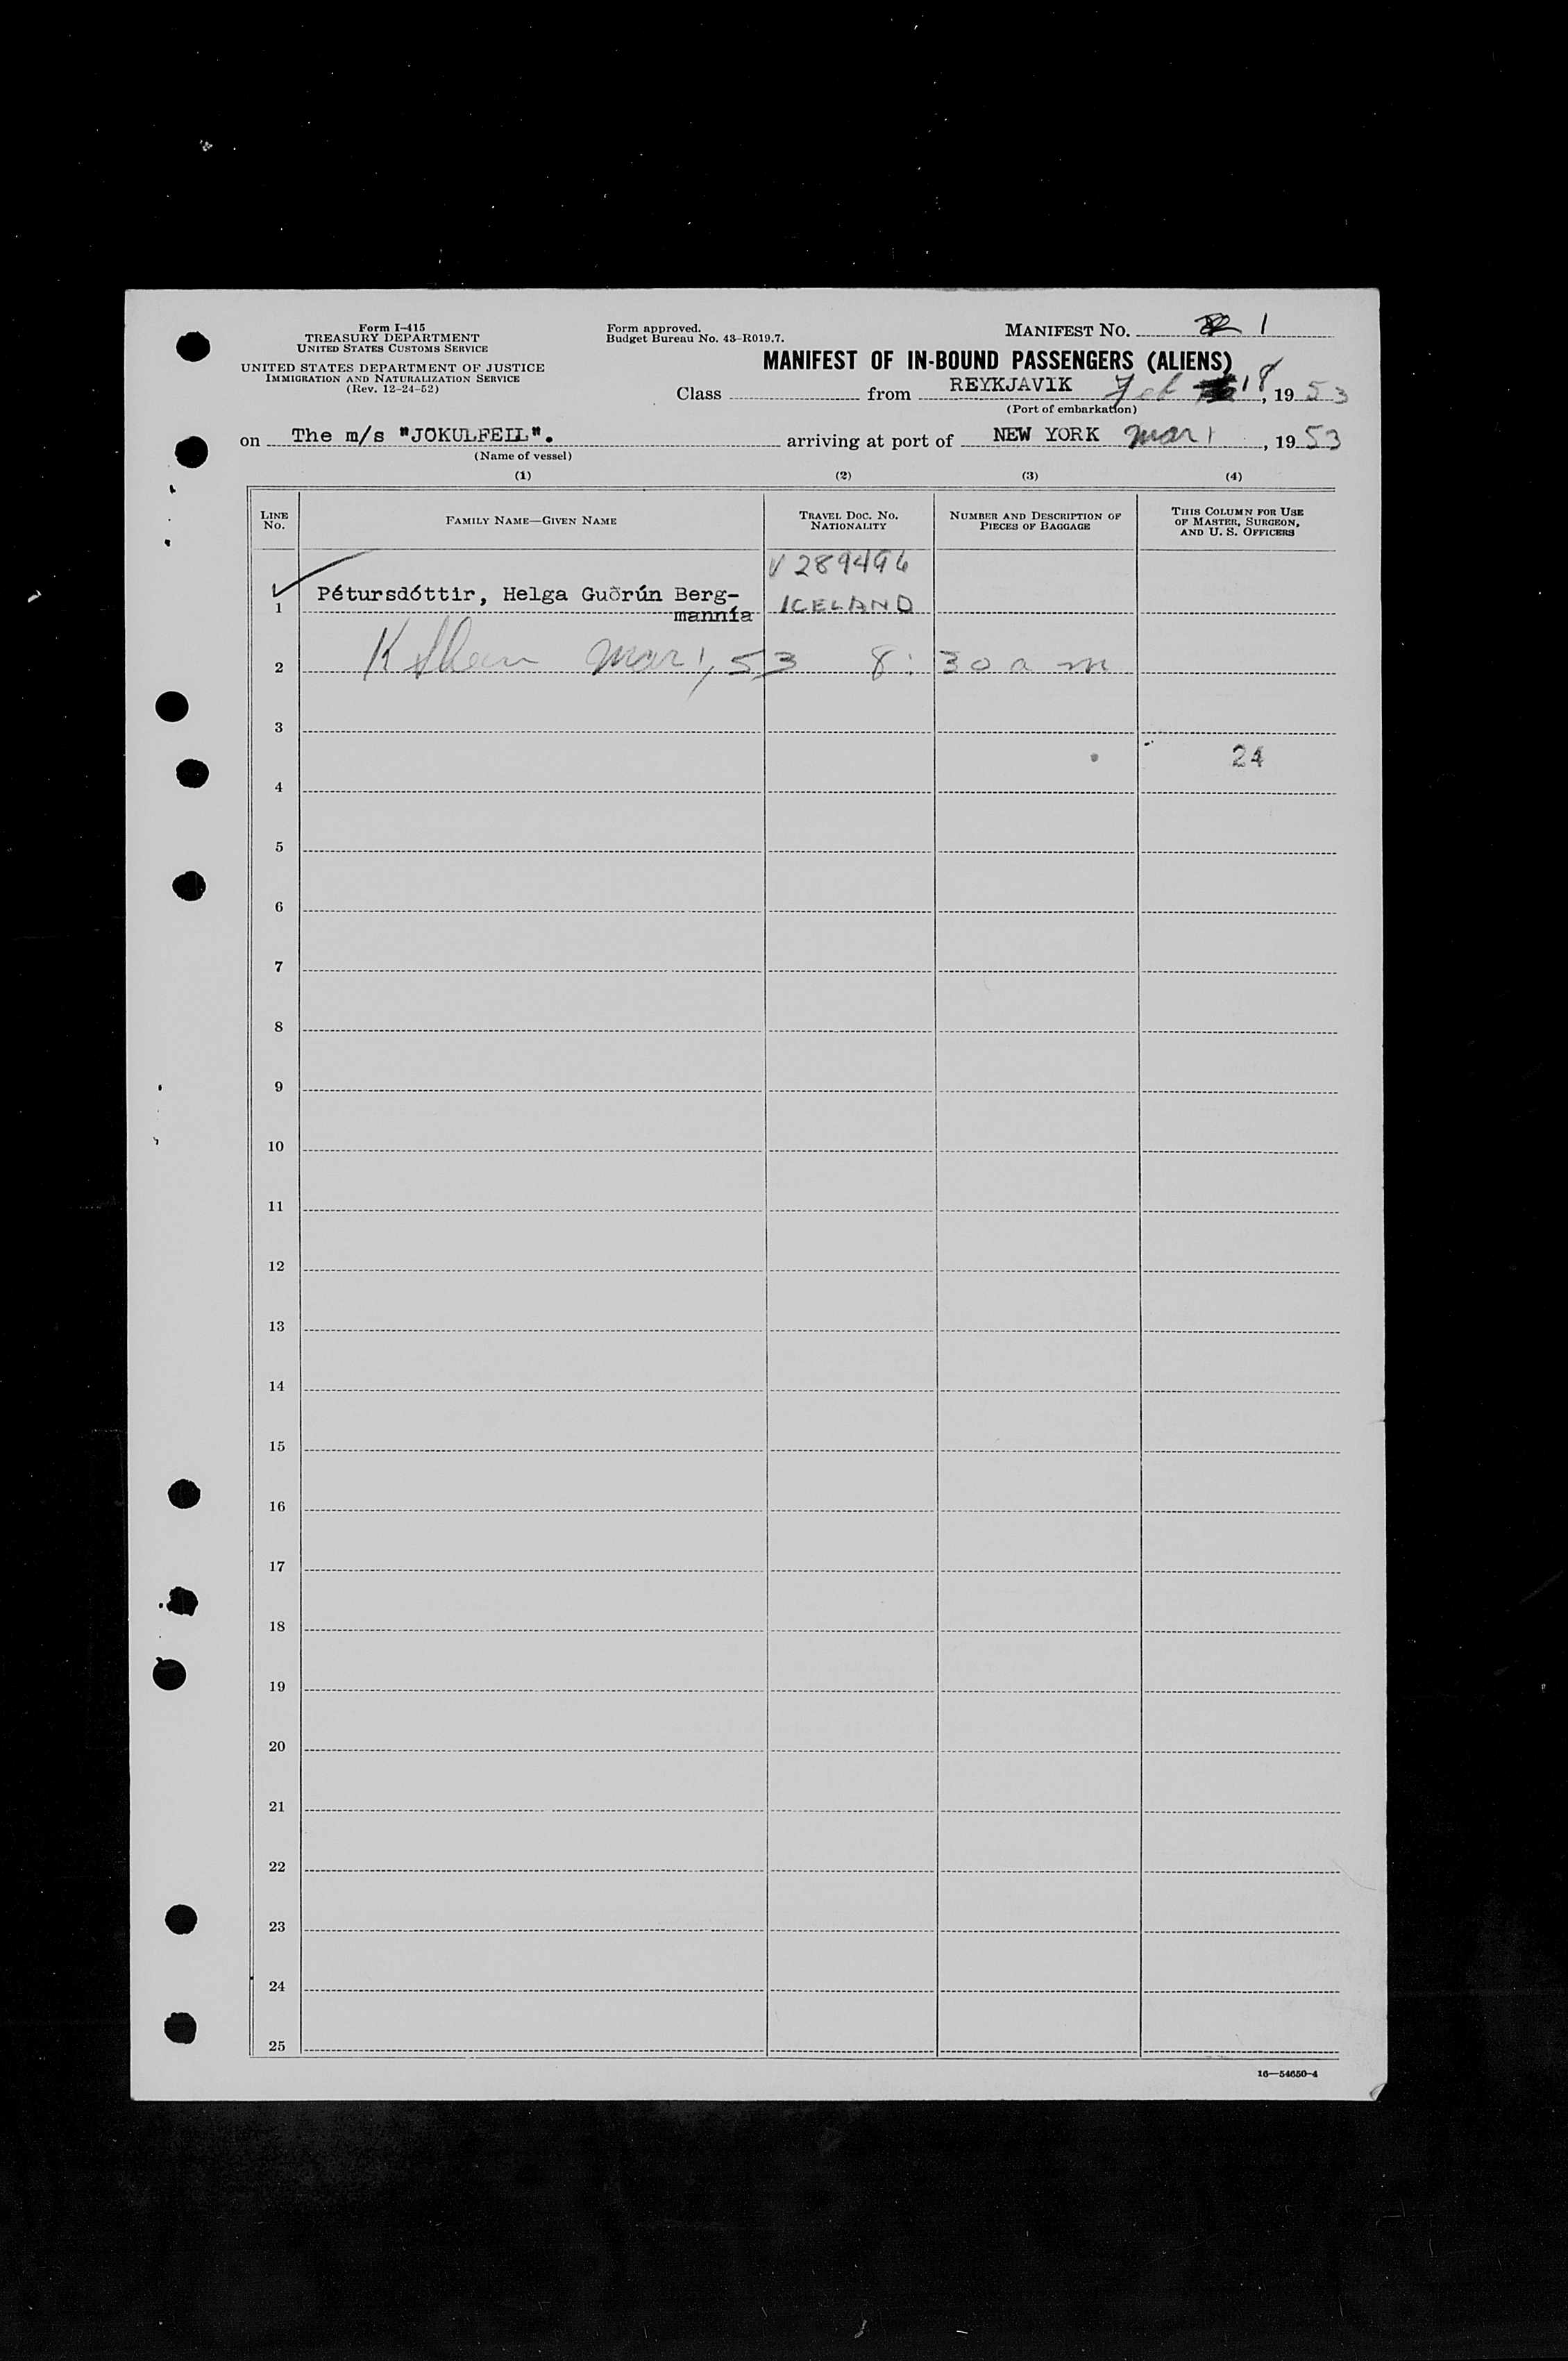 Form I-415
TREASURY DEPARTMENT
UNITED STATES CUSTOMS SERVICE
UNITED STATES DEPARTMENT OF JUSTICE
IMMIGRATION AND NATURALIZATION SERVICE
(Rev. 12-24-52)
Form approved.
Budget Bureau No. 43-R019.7.
MANIFEST No. 1
MANIFEST OF IN-BOUND PASSENGERS (ALIENS)
Class from REYKJAVIK Feb 18, 1953
(Port of embarkation)
on The m/s "JOKULFELL". arriving at port of NEW YORK Mar 1, 1953
(Name of vessel)
(1) (2) (3) (4)
LINE No. FAMILY NAME—GIVEN NAME TRAVEL DOC. No. NATIONALITY NUMBER AND DESCRIPTION OF PIECES OF BAGGAGE THIS COLUMN FOR USE OF MASTER, SURGEON, AND U. S. OFFICERS
V 289496
1 Pétursdóttir, Helga Guðrún Berg- ICELAND
mannía
2 K Mar 1, 53 8:30 a m
3
24
4
5
6
7
8
9
10
11
12
13
14
15
16
17
18
19
20
21
22
23
24
25
16—54650-4